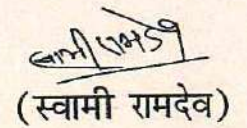 स्वामी रामदेव
(स्वामी रामदेव)